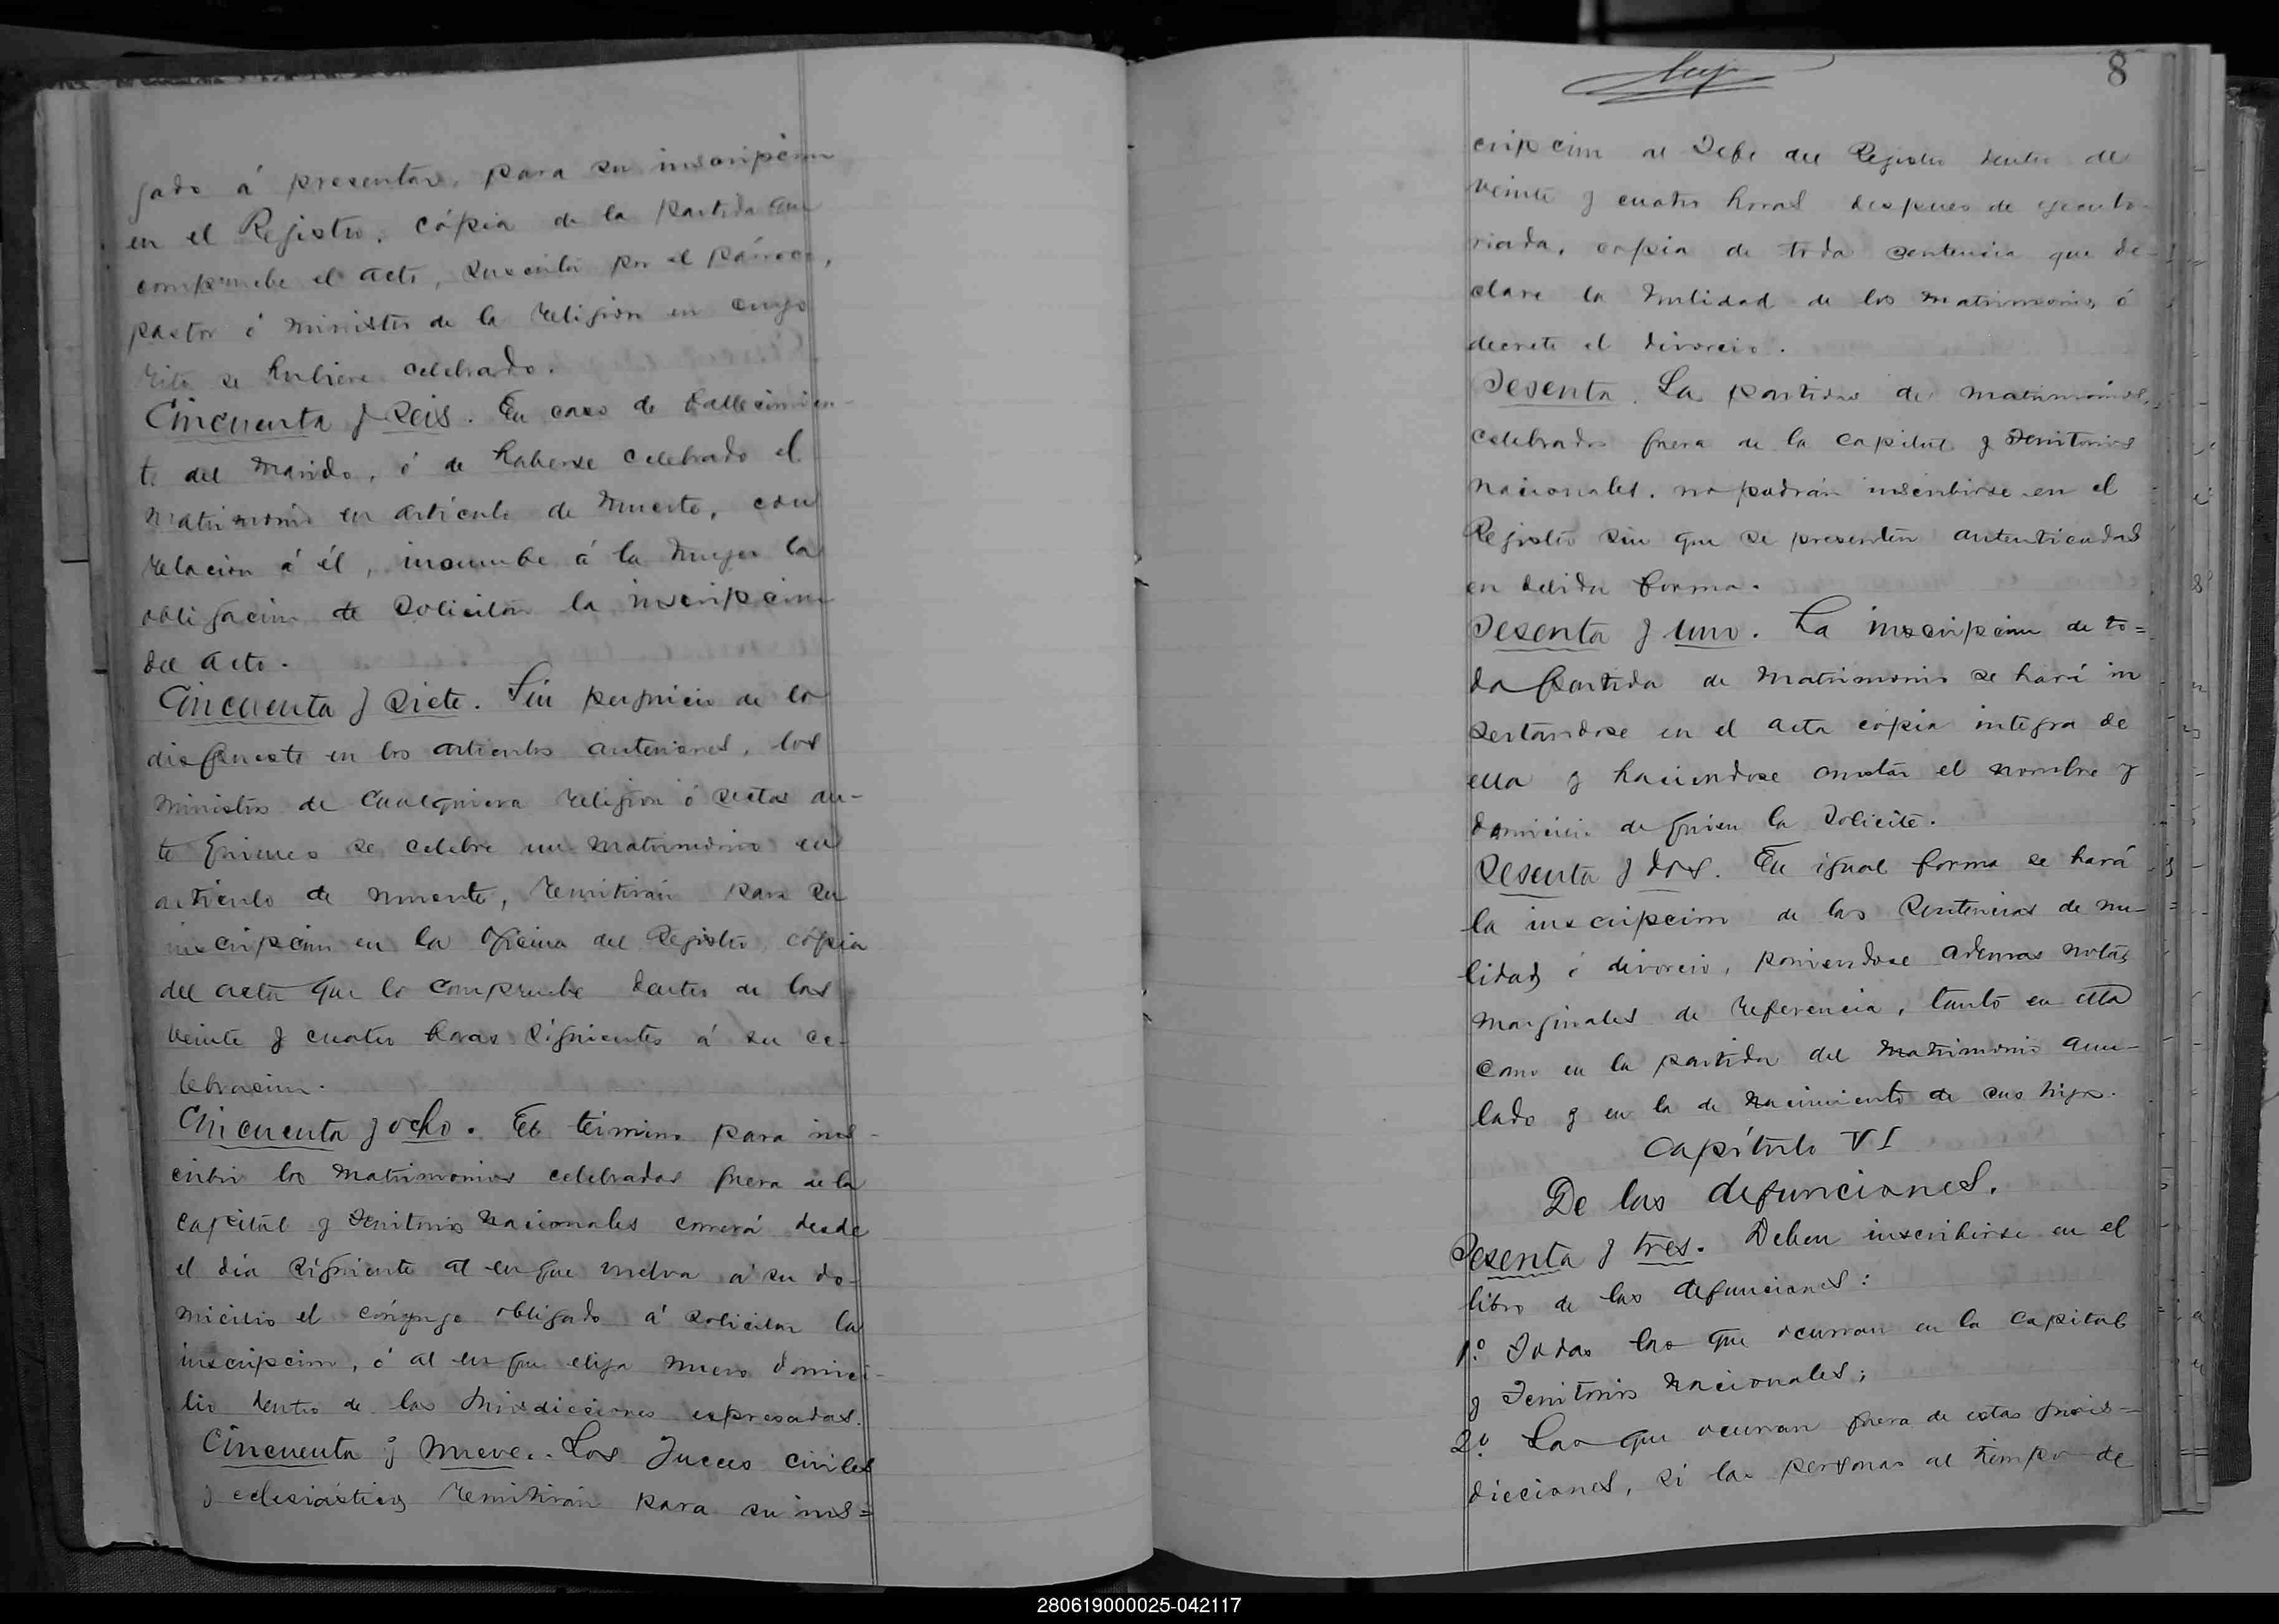 gado á presentar, para su inscripcion
en el Registro, cópia de la partida que
compruebe el acto, suscrita por el párroco,
pastor ó ministro de la religion en cuyo
rito se hubiere celebrado.
Cincuenta y seis. En caso de fallecimien-
to del marido, ó de haberse celebrado el
matrimonio en articulo de muerte, con
relacion á él, incumbe á la muger la
obligacion de solicitar la inscripcion
del acto.
Cincuenta y siete. Sin perjuicio de lo
dispuesto en los articulos anteriores, los
ministros de cualquiera religion ó sectas an-
te quienes se celebre un matrimonio en
articulo de muerte, remitirán para su
inscripcion en la oficina del Registro, cópia
del acta que lo compruebe dentro de las
veinte y cuatro horas siguientes á su ce-
lebracion.
Cincuenta y ocho. El término para ins-
cribir los matrimonios celebrados fuera de la
capital y territorios nacionales correrá desde
el dia siguiente al en que vuelva á su do-
micilio el cónyuge obligado á solicitar la
inscripcion, ó al en que elija nuevo domici-
lio dentro de las jurisdicciones espresadas.
Cincuenta y nueve. Los Jueces civiles
y eclesiásticos remitirán para su ins=
8
cripcion al Jefe del Registro dentro de
veinte y cuatro horas despues de ejecuto-
riada, copia de toda sentencia que de-
clare la nulidad de los matrimonios ó
decrete el divorcio.
Sesenta. Las partidas de matrimónios,
celebrados fuera de la capital y territorios
nacionales, no podrán inscribirse en el
Registro sin que se presenten autenticadas
en debida forma.
Sesenta y uno. La inscripcion de to=
da partida de matrimonio se hará in
sertandose en el acta cópia integra de
ella y haciendose constar el nombre y
domicilio de quien la solicite.
Sesenta y dos. En igual forma se hará
la inscripcion de las sentencias de nu-
lidad ó divorcio, poniendose ademas notas
marginales de referencia, tanto en ella
como en la partida del matrimonio anu-
lado y en la de nacimiento de sus hijos.
Capítulo VI
De las defunciones.
Sesenta y tres. Deben inscribirse en el
libro de las defunciones:
1.º Todas las que ocurran en la capital
y Territorios nacionales;
2.º Las que ocurran fuera de estas juris=
dicciones, si las personas al tiempo de
280619000025-042117